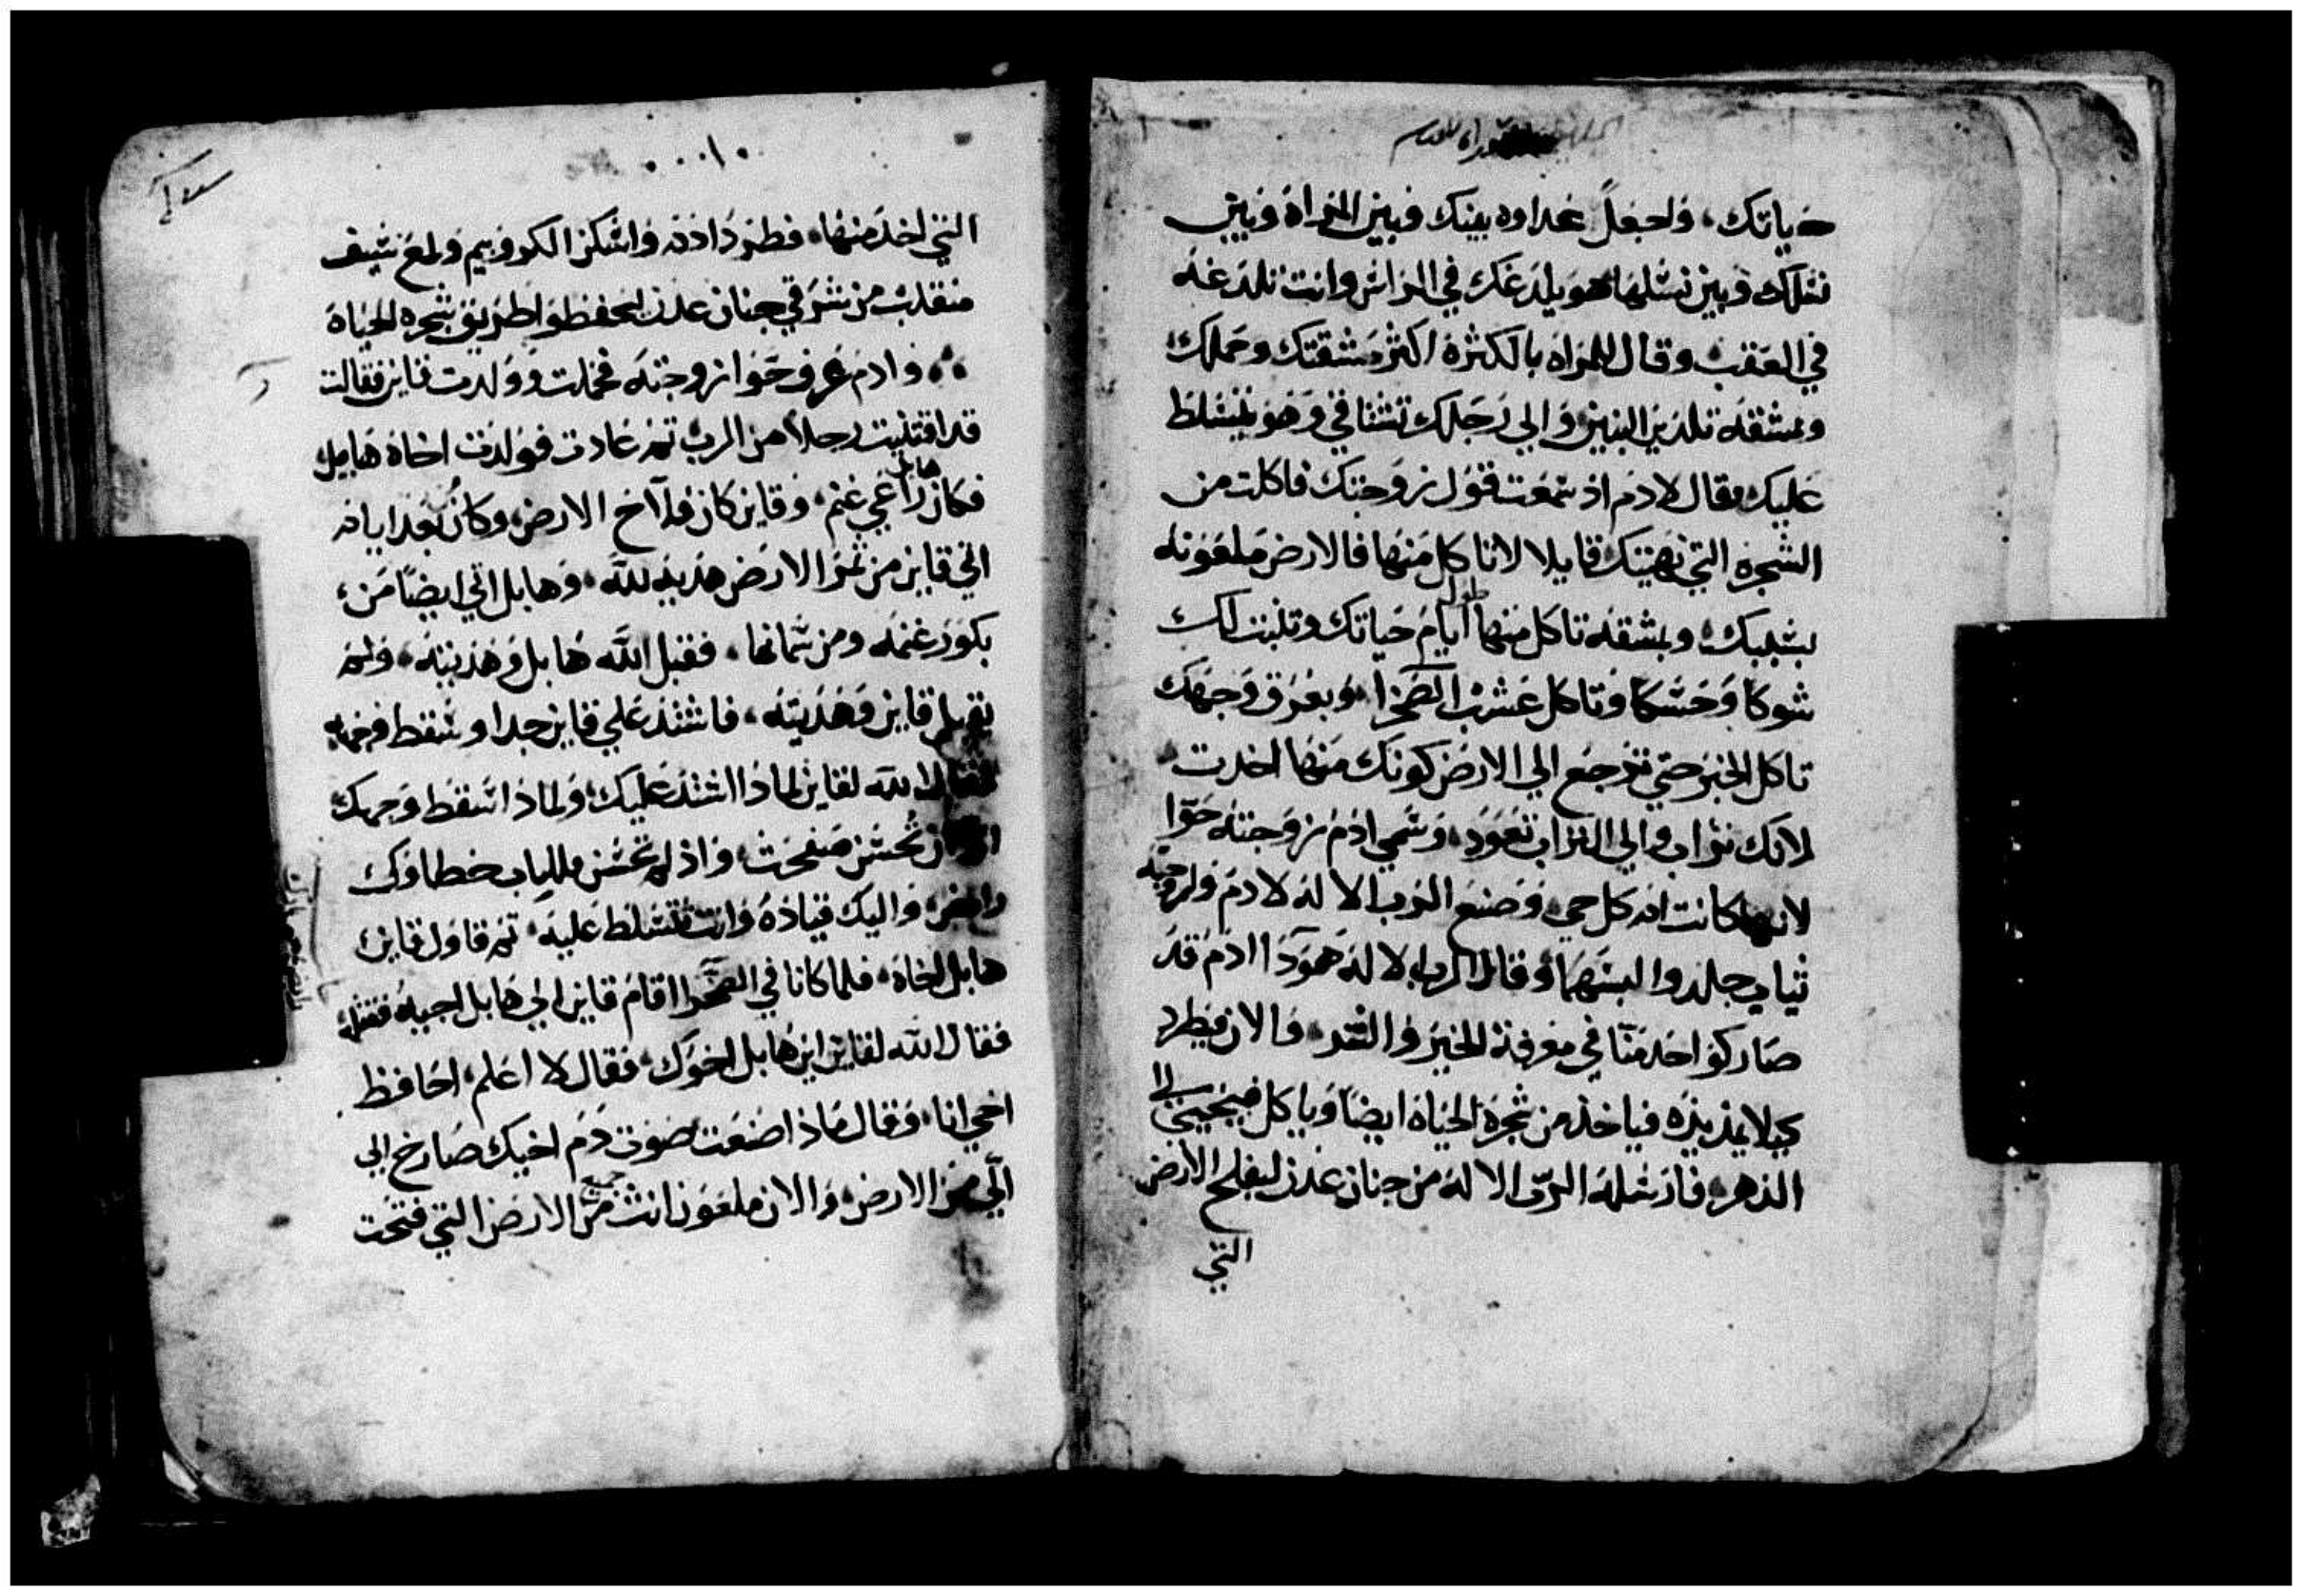 حياتك، واجعل عداوه بينك وبين المراة وبين
نسلك وبين نسلها هو يلدغك في الراس وانت تلدغه
في العقب وقال للمراه بالكثرة اكثر مشقتك وحملك
وبمشقه تلدين البنين والي رجلك تشتاقي وهو يتسلط
عليك وقال لادم اذ سمعت قول زوجتك فاكلت من
الشجره التي نهيتك قايلا لا تاكل منها فالارض ملعونه
بسببك، وبمشقه تاكل منها طول ايام حياتك وتنبت لك
شوكا وحسكا وتاكل عشب الصحرا، وبعرق وجهك
تاكل الخبز حتي ترجع الي الارض كونك منها اخدت
لانك تراب والي التراب تعود، وسمي ادم زوجته حوا
لانها كانت ام كل حي، وصنع الرب الاله لادم ولزوجته
ثياب جلد والبسهما وقال الرب الاله هودا ادم قد
صار كواحد منا في معرفة الخير والشر، والان فيطرد
كيلا يمد يده فياخذ من شجرة الحياة ايضا وياكل فيحيي الي
الدهر، فارسله الرب الاله من جنان عدن ليفلح الارض
التي
التي اخذ منها، فطرد ادم واسكن الكروبيم ولمع سيف
منقلب من شرقي جنان عدن ليحفظوا طريق شجره الحياة
وادم عرف حوا زوجته فحملت وولدت قاين فقالت
قد اقتنيت رجلا من الرب ثم عادت فولدت اخاه هابيل
فكان هابل راعي غنم، وقاين كان فلاح الارض، وكان بعد ايام
اتي قاين من ثمر الارض هديه لله، وهابل اتي ايضا من
بكور غنمه ومن سمانها، فقبل الله هابل وهديته، ولم
يقبل قاين وهديته، فاشتد علي قاين جدا وسقط وجهه
فقال الله لقاين لماذا اشتد عليك ولماذا سقط وجهك
ان تحسن صفحت، واذ لم تحسن فللباب خطاوك
رابض، واليك قياده وانت تتسلط عليه، ثم قاول قاين
هابل اخاه، فلما كانا في الصحرا اقام قاين الي هابل اخيه فقتله
فقال الله لقاين اين هابل اخوك، فقال لا اعلم، احافظ
اخي انا، وقال ماذا صنعت صوت دم اخيك صارخ الي
الي من الارض، والان ملعون انت من جميع الارض التي فتحت